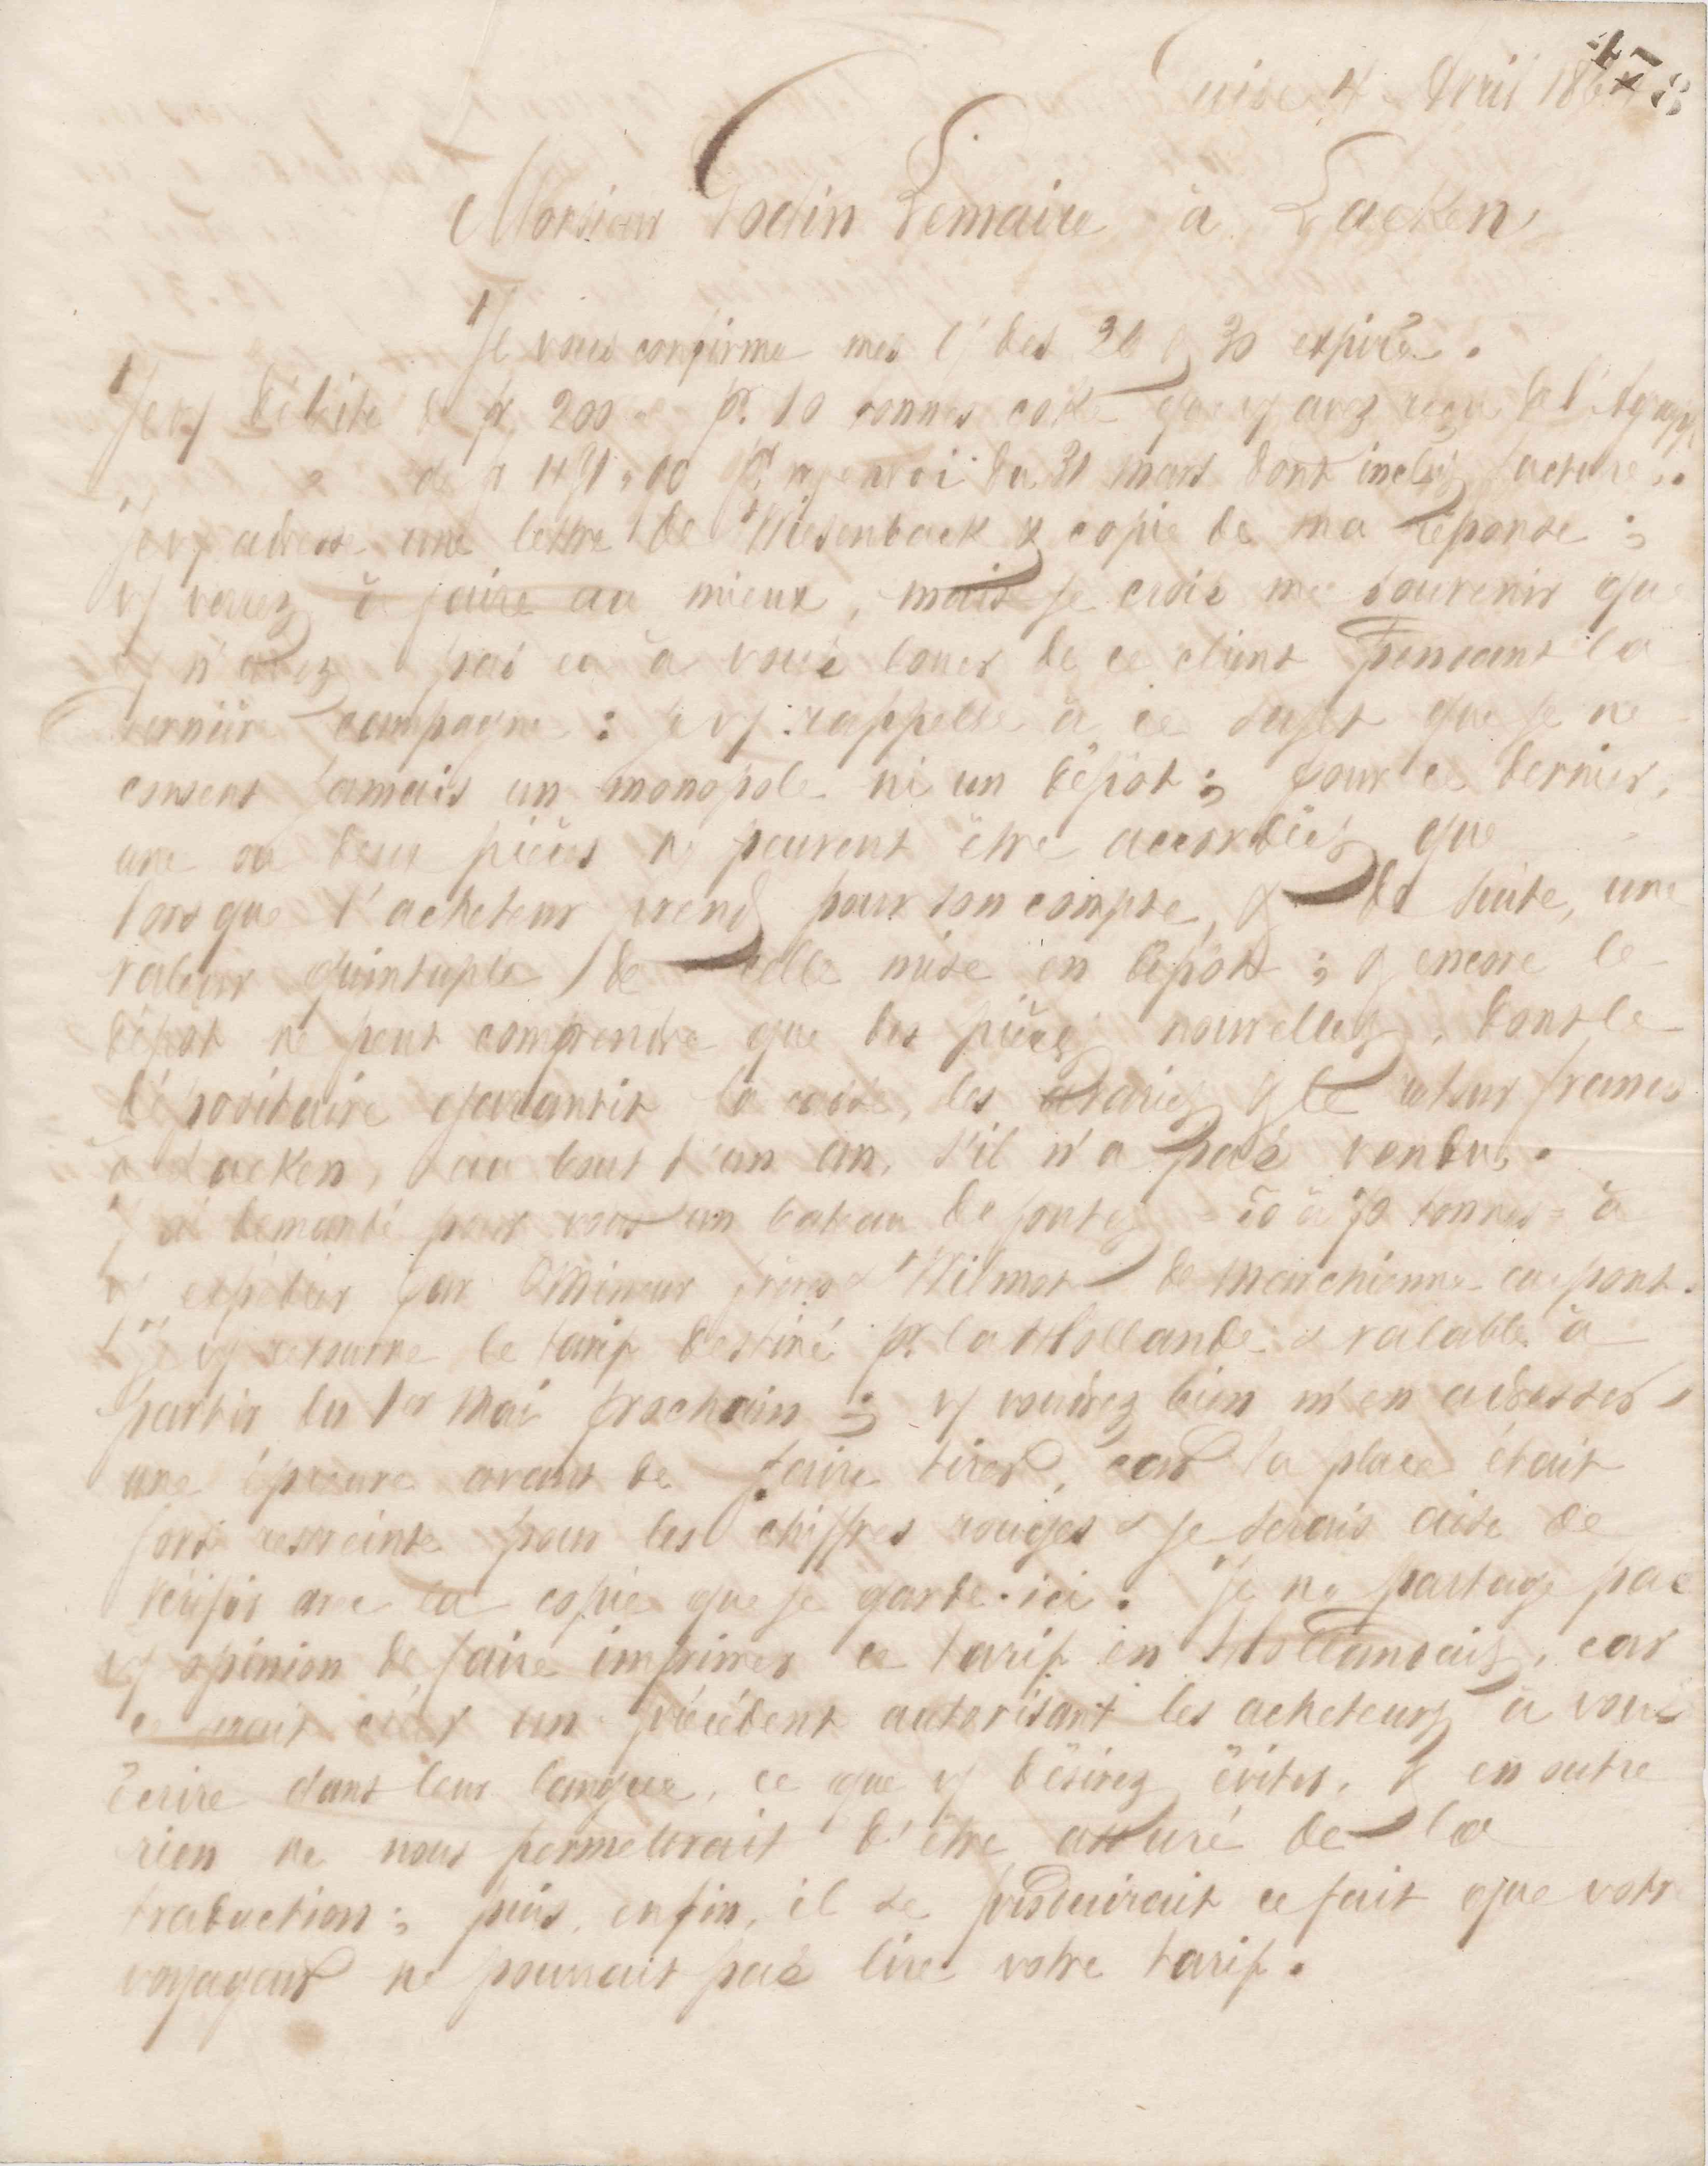 478
Guise 4 Avril 186
Monsieur Godin Lemaire à Laeken
Je vous confirme mes l/ des 26 & 30 expirés.
Je v/ débite de f 200 pr. 10 tonnes coke que v/ avez reçu de l'
de f pr m/ envoi du 31 mars dont inclus facture.
Je v/ adresse une lettre de Wiesenback & copie de ma réponse ;
v/ verrez à faire au mieux, mais je crois me souvenir que
v/ n'avez pas eu à vous louer de ce client pendant la
dernière campagne : je v/ rappelle à ce sujet que je ne
consent jamais un monopole ni un dépôt ; pour ce dernier,
une ou deux pièces ne peuvent être accordées que
lorsque l'acheteur prend pour son compte, & de suite, une
valeur quintuple de celle mise en dépôt ; & encore le
dépôt ne peut comprendre que des pièces nouvelles, dont le
dépositaire garantit la casse, les avaries & le retour franco
à Laeken, au bout d'un an, s'il n'a pas vendu.
J'ai demandé pour vous un bateau de fontes = 50 à 70 tonnes = à
v/ expédier par Mineur frères & Wilmot de Marchienne au pont.
Je v/ retourne le tarif destiné pr. la Hollande & valable à
partir du 1er Mai prochain ; v/ voudrez bien m'en adresser
une épreuve avant de faire tirer, car la place était
fort restreinte pour les chiffres rouges & je serais aise de
vérifier avec la copie que je garde ici. Je ne partage pas
v/ opinion de faire imprimer ce tarif en Hollandais, car
ce serait créer un précédent autorisant les acheteurs à vous
écrire dans leur langue, ce que v/ désirez éviter, & en outre
rien ne nous permettrait d'être assuré de la
traduction ; puis, enfin, il se produirait ce fait que votre
voyageur ne pourrait pas lire votre tarif.